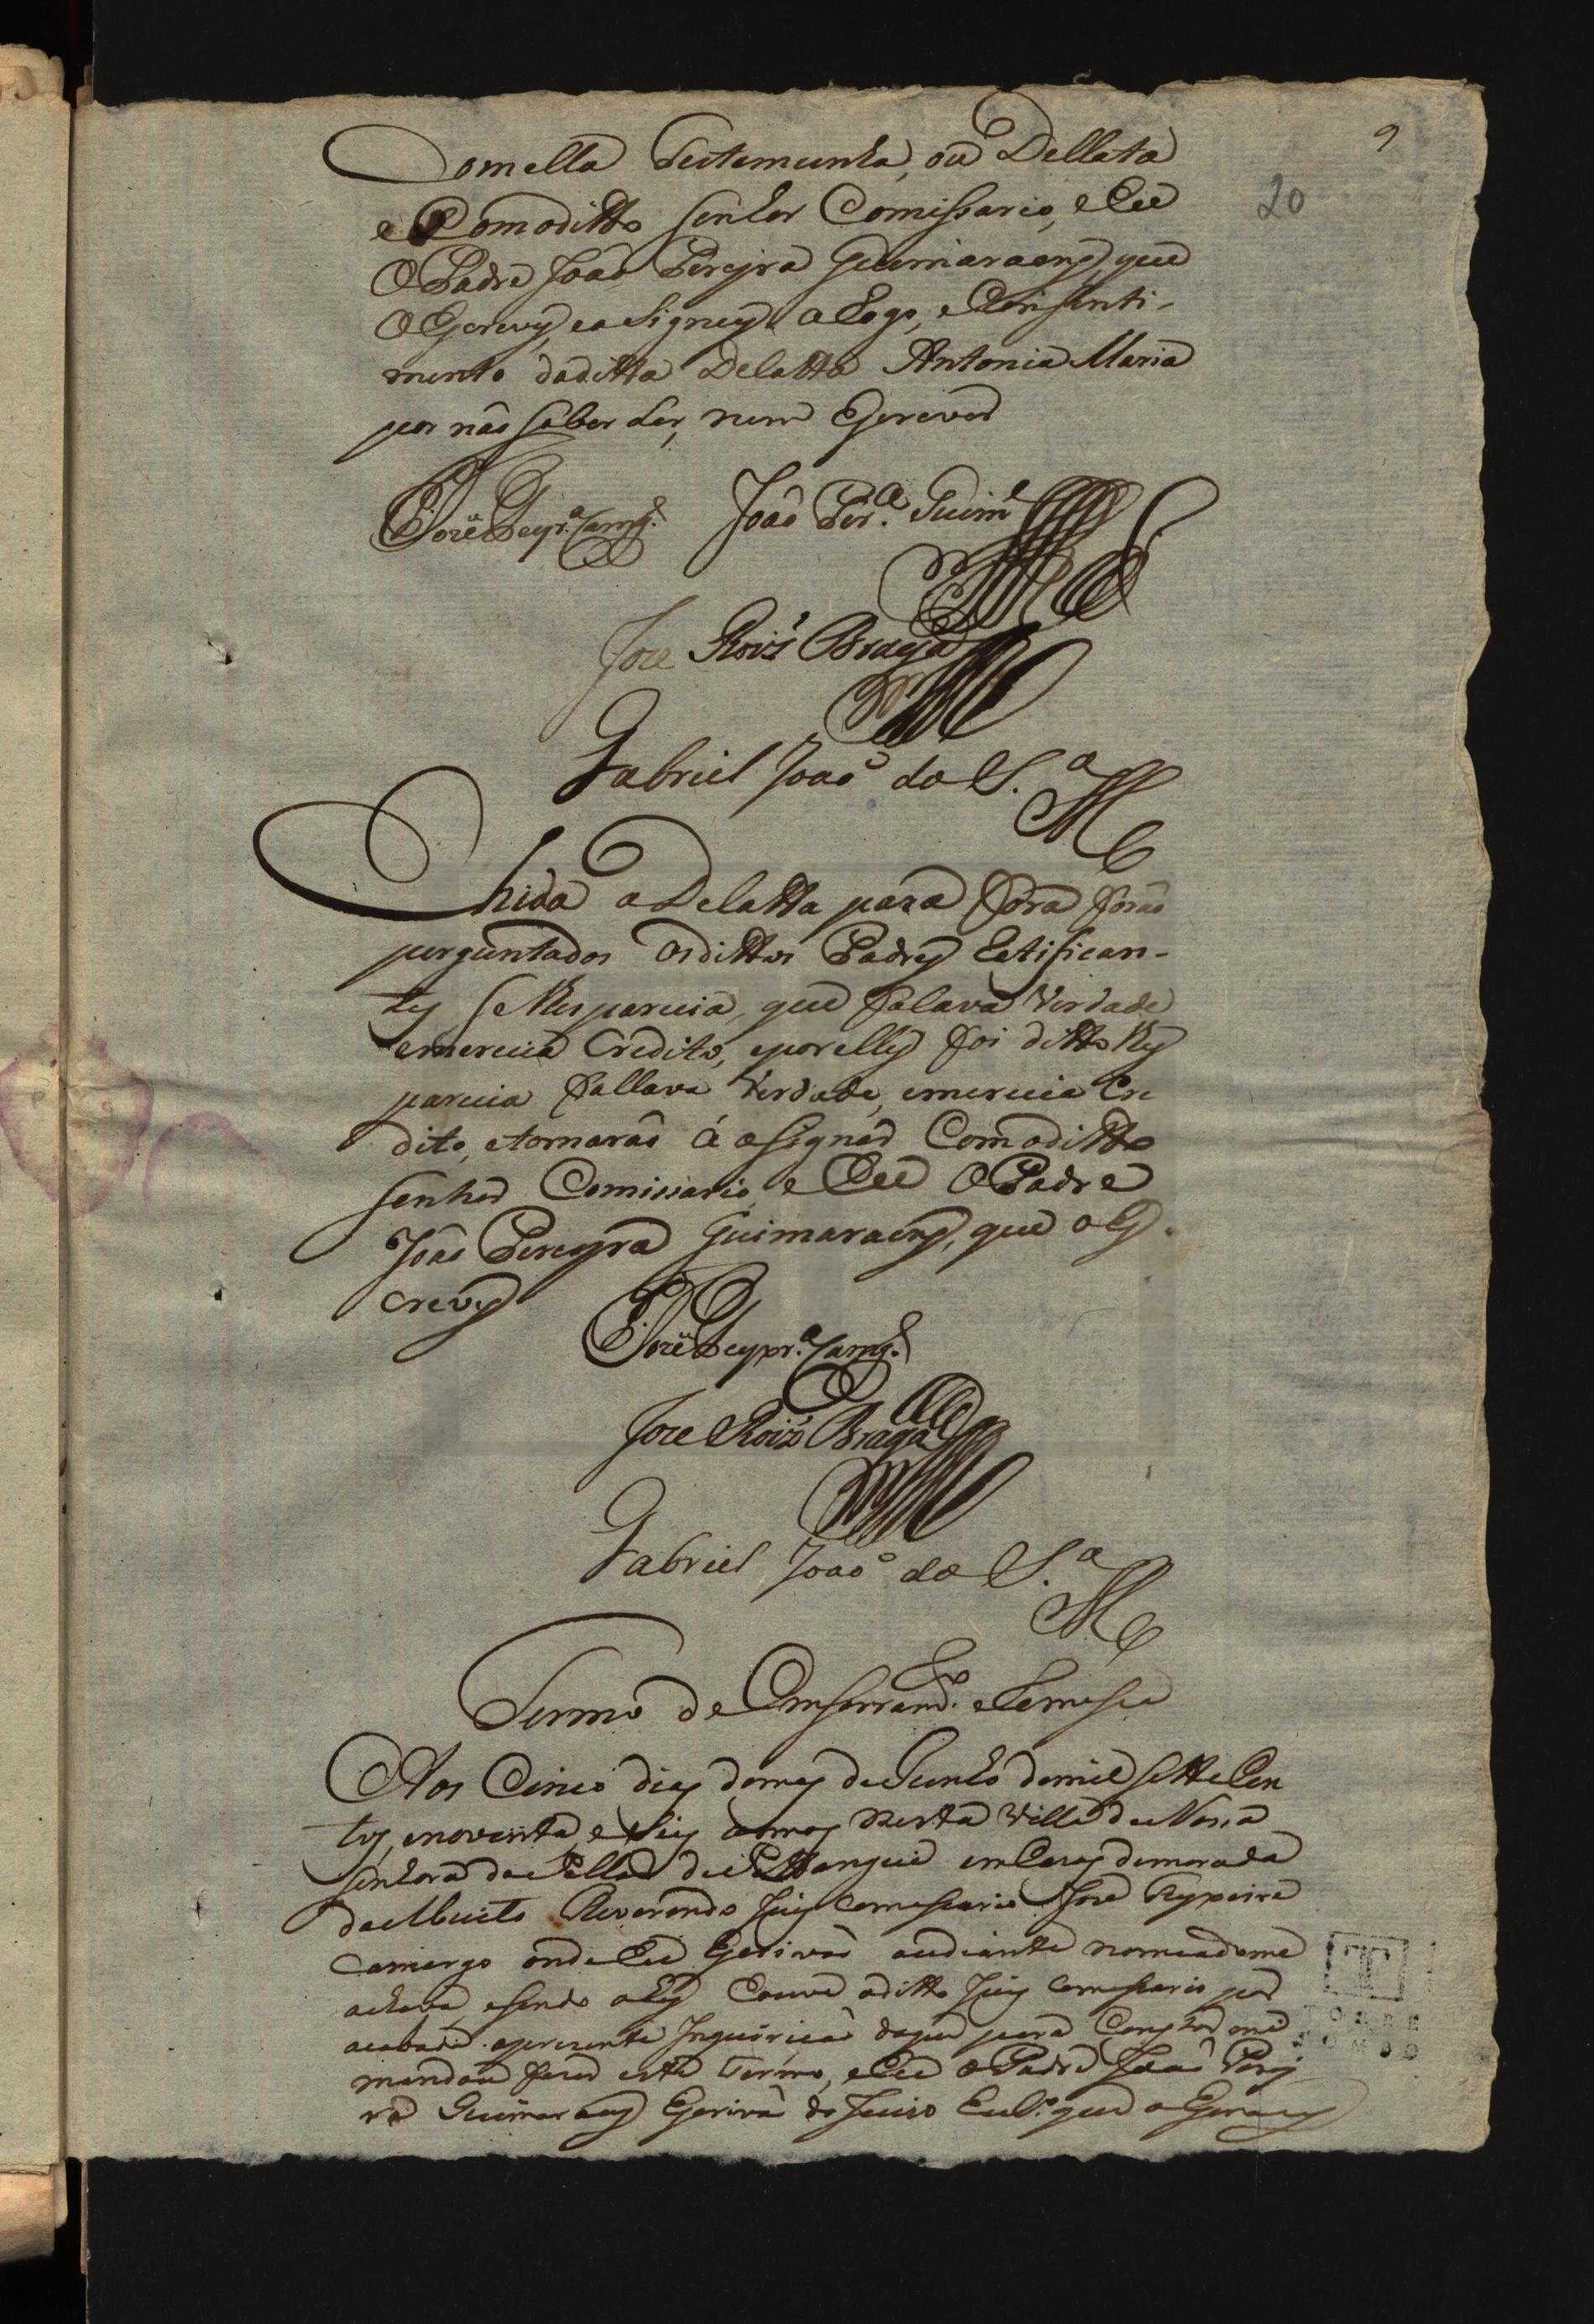 9
20
Com ella Testemunha, ou Dellata
e Com o ditto Senhor Comissario, e Eu
O Padre João Pereyra Guimaraens, que
O Escrevy, e asigney a Rogo, e Consinti-
mento da ditta Delatta Antonia Maria
por não saber Ler, nem Escrever
Joze Teyxr.ª Camg.º João Per.ª Guim.es
Joze Roiz Braga
Gabriel João da S.ª
E hida a Delatta para fora forão
perguntados os dittos Padres Ratifican-
tes se lhes parecia, que falava verdade
e merecia Credito, e por elles foi ditto lhes
parecia fallava verdade, e merecia Cre
dito, e tornarão á asignar Com o ditto
Senhor Comissario, e Eu O Padre
João Pereyra Guimaraens, que o Es-
crevy
Joze Teyxr.ª Camg.º
Joze Roiz Braga
Gabriel João da S.ª
Termo de Enserram.to e Remessa
Aos Cinco dias do mes de Junho de mil sette Cen
tos, e noventa, e Seis annos nesta Villa de Nossa
Senhora da Piedade de Pittangui em Cazas de morada
do Muito Reverendo Juiz Comissario Joze Teyxeira
Camargo onde Eu Escrivão audiante nomeado me
achava, e sendo ahy Houve o ditto Juiz Comissario por
acabada a prezente Inquirição do que para Constar me
mandou fazer este Termo, e Eu o Padre João Perey
ra Guimaraens Escrivão do Juizo Ecl.º que o Escrevy
TT
TORRE
TOMBO